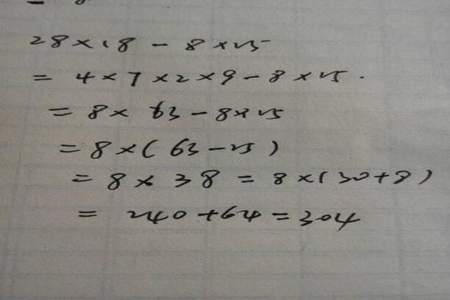 28×18-8×25
=4×7×2×9-8×25.
=8×63-8×25
=8×(63-25)
=8×38=8×(30+8)
=240+64=304